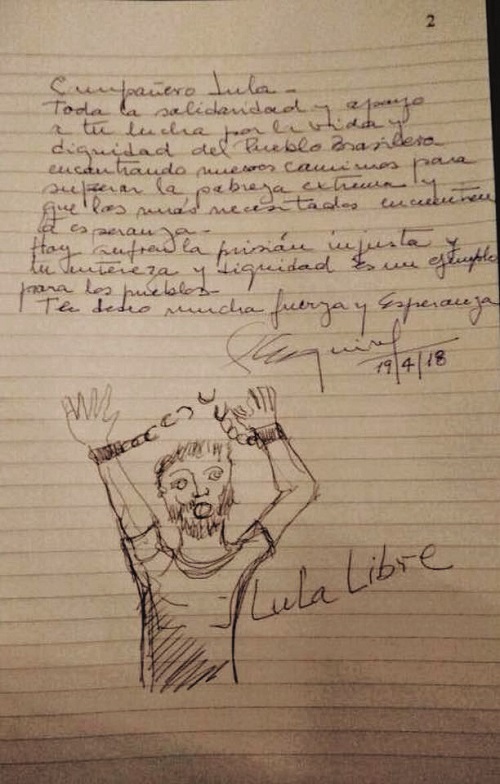 2
Compañero Lula -
Toda la solidaridad y apoyo
a tu lucha por la vida y
dignidad del Pueblo Brasilero
encontrando nuevos caminos para
superar la pobreza extrema y
que los más necesitados encuentren
la esperanza.-
Hoy sufres la prisión injusta y
tu entereza y dignidad es un ejemplo
para los pueblos-
Te deseo mucha fuerza y Esperanza
19/4/18
Lula Libre